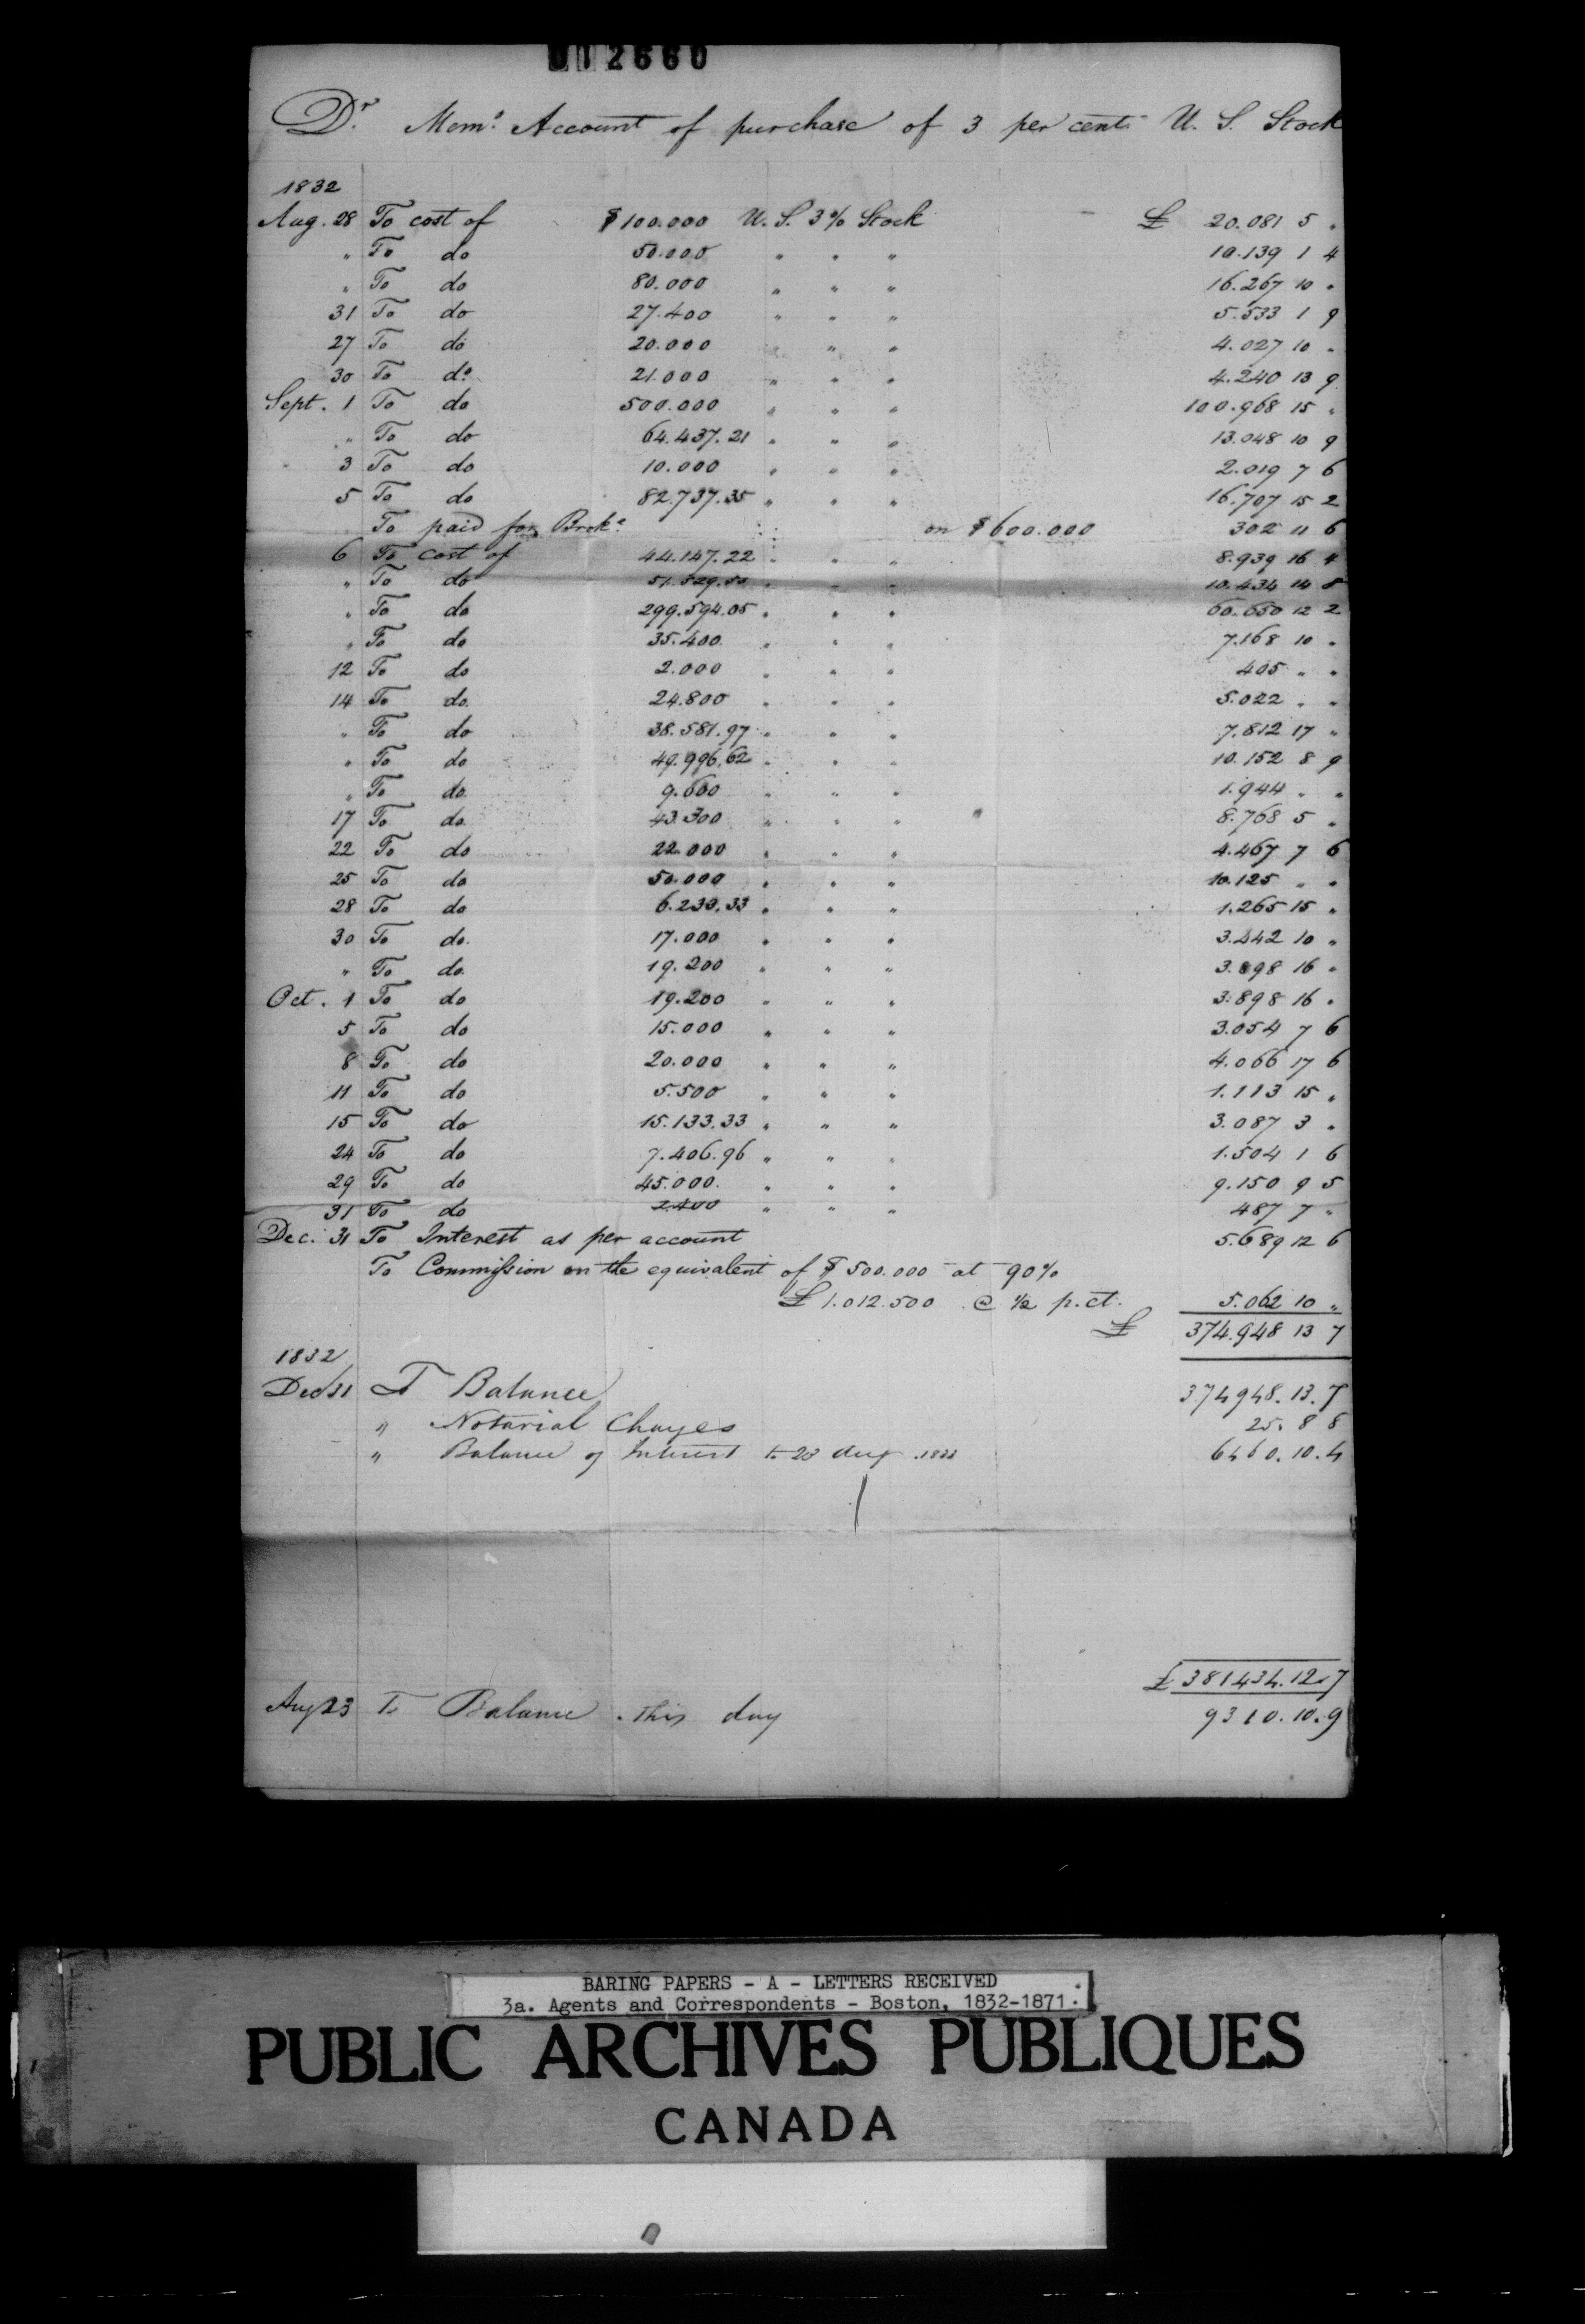 012660
Dr. Memo. Account of purchase of 3 per cent U. S. Stock
1832
Aug. 28 To cost of $100.000 U. S. 3% Stock £ 20.081 5 "
" To do 50.000 " " " 10.139 1 4
" To do 80.000 " " " 16.267 10 "
31 To do 27.400 " " " 5.533 1 9
27 To do 20.000 " " " 4.027 10 "
30 To do. 21.000 " " " 4.240 13 9
Sept. 1 To do 500.000 " " " 100.968 15 "
" To do 64.437.21 " " " 13.048 10 9
3 To do 10.000 " " " 2.019 7 6
5 To do 82.737.35 " " " 16.707 15 2
To paid for Broke. on $600.000 302 11 6
6 To cost of 44.147.22 " " " 8.939 16 4
" To do 51.529.50 " " " 10.434 14 8
" To do 299.594.05 " " " 60.650 12 2
" To do 35.400 " " " 7.168 10 "
12 To do 2.000 " " " 405 " "
14 To do. 24.800 " " " 5.022 " "
" To do 38.581.97 " " " 7.812 17 "
" To do 49.996.62 " " " 10.152 8 9
" To do 9.600 " " " 1.944 " "
17 To do. 43.300 " " " 8.768 5 "
22 To do 22.000 " " " 4.467 7 6
25 To do 50.000 " " " 10.125 " "
28 To do 6.233.33 " " " 1.265 15 "
30 To do. 17.000 " " " 3.442 10 "
" To do. 19.200 " " " 3.898 16 "
Oct. 1 To do 19.200 " " " 3.898 16 "
5 To do 15.000 " " " 3.054 7 6
8 To do 20.000 " " " 4.066 17 6
11 To do 5.500 " " " 1.113 15 "
15 To do 15.133.33 " " " 3.087 3 "
24 To do 7.406.96 " " " 1.504 1 6
29 To do 45.000. " " " 9.150 9 5
31 To do 2.400 " " " 487 7 "
Dec. 31 To Interest as per account 5.689 12 6
To Commission on the equivalent of $500.000 at 90%
£1.012.500 @ ½ p.ct. 5.062 10 "
£ 374.948 13 7
1832
Dec 31 T Balance 374948.13.7
" Notarial Charges 25. 8 8
" Balance of Interest to 23 Aug. 1833 6460.10.4
£381434.12.7
Aug 23 To Balance this day 9310.10.9
BARING PAPERS - A - LETTERS RECEIVED
3a. Agents and Correspondents - Boston, 1832-1871.
PUBLIC ARCHIVES PUBLIQUES
CANADA